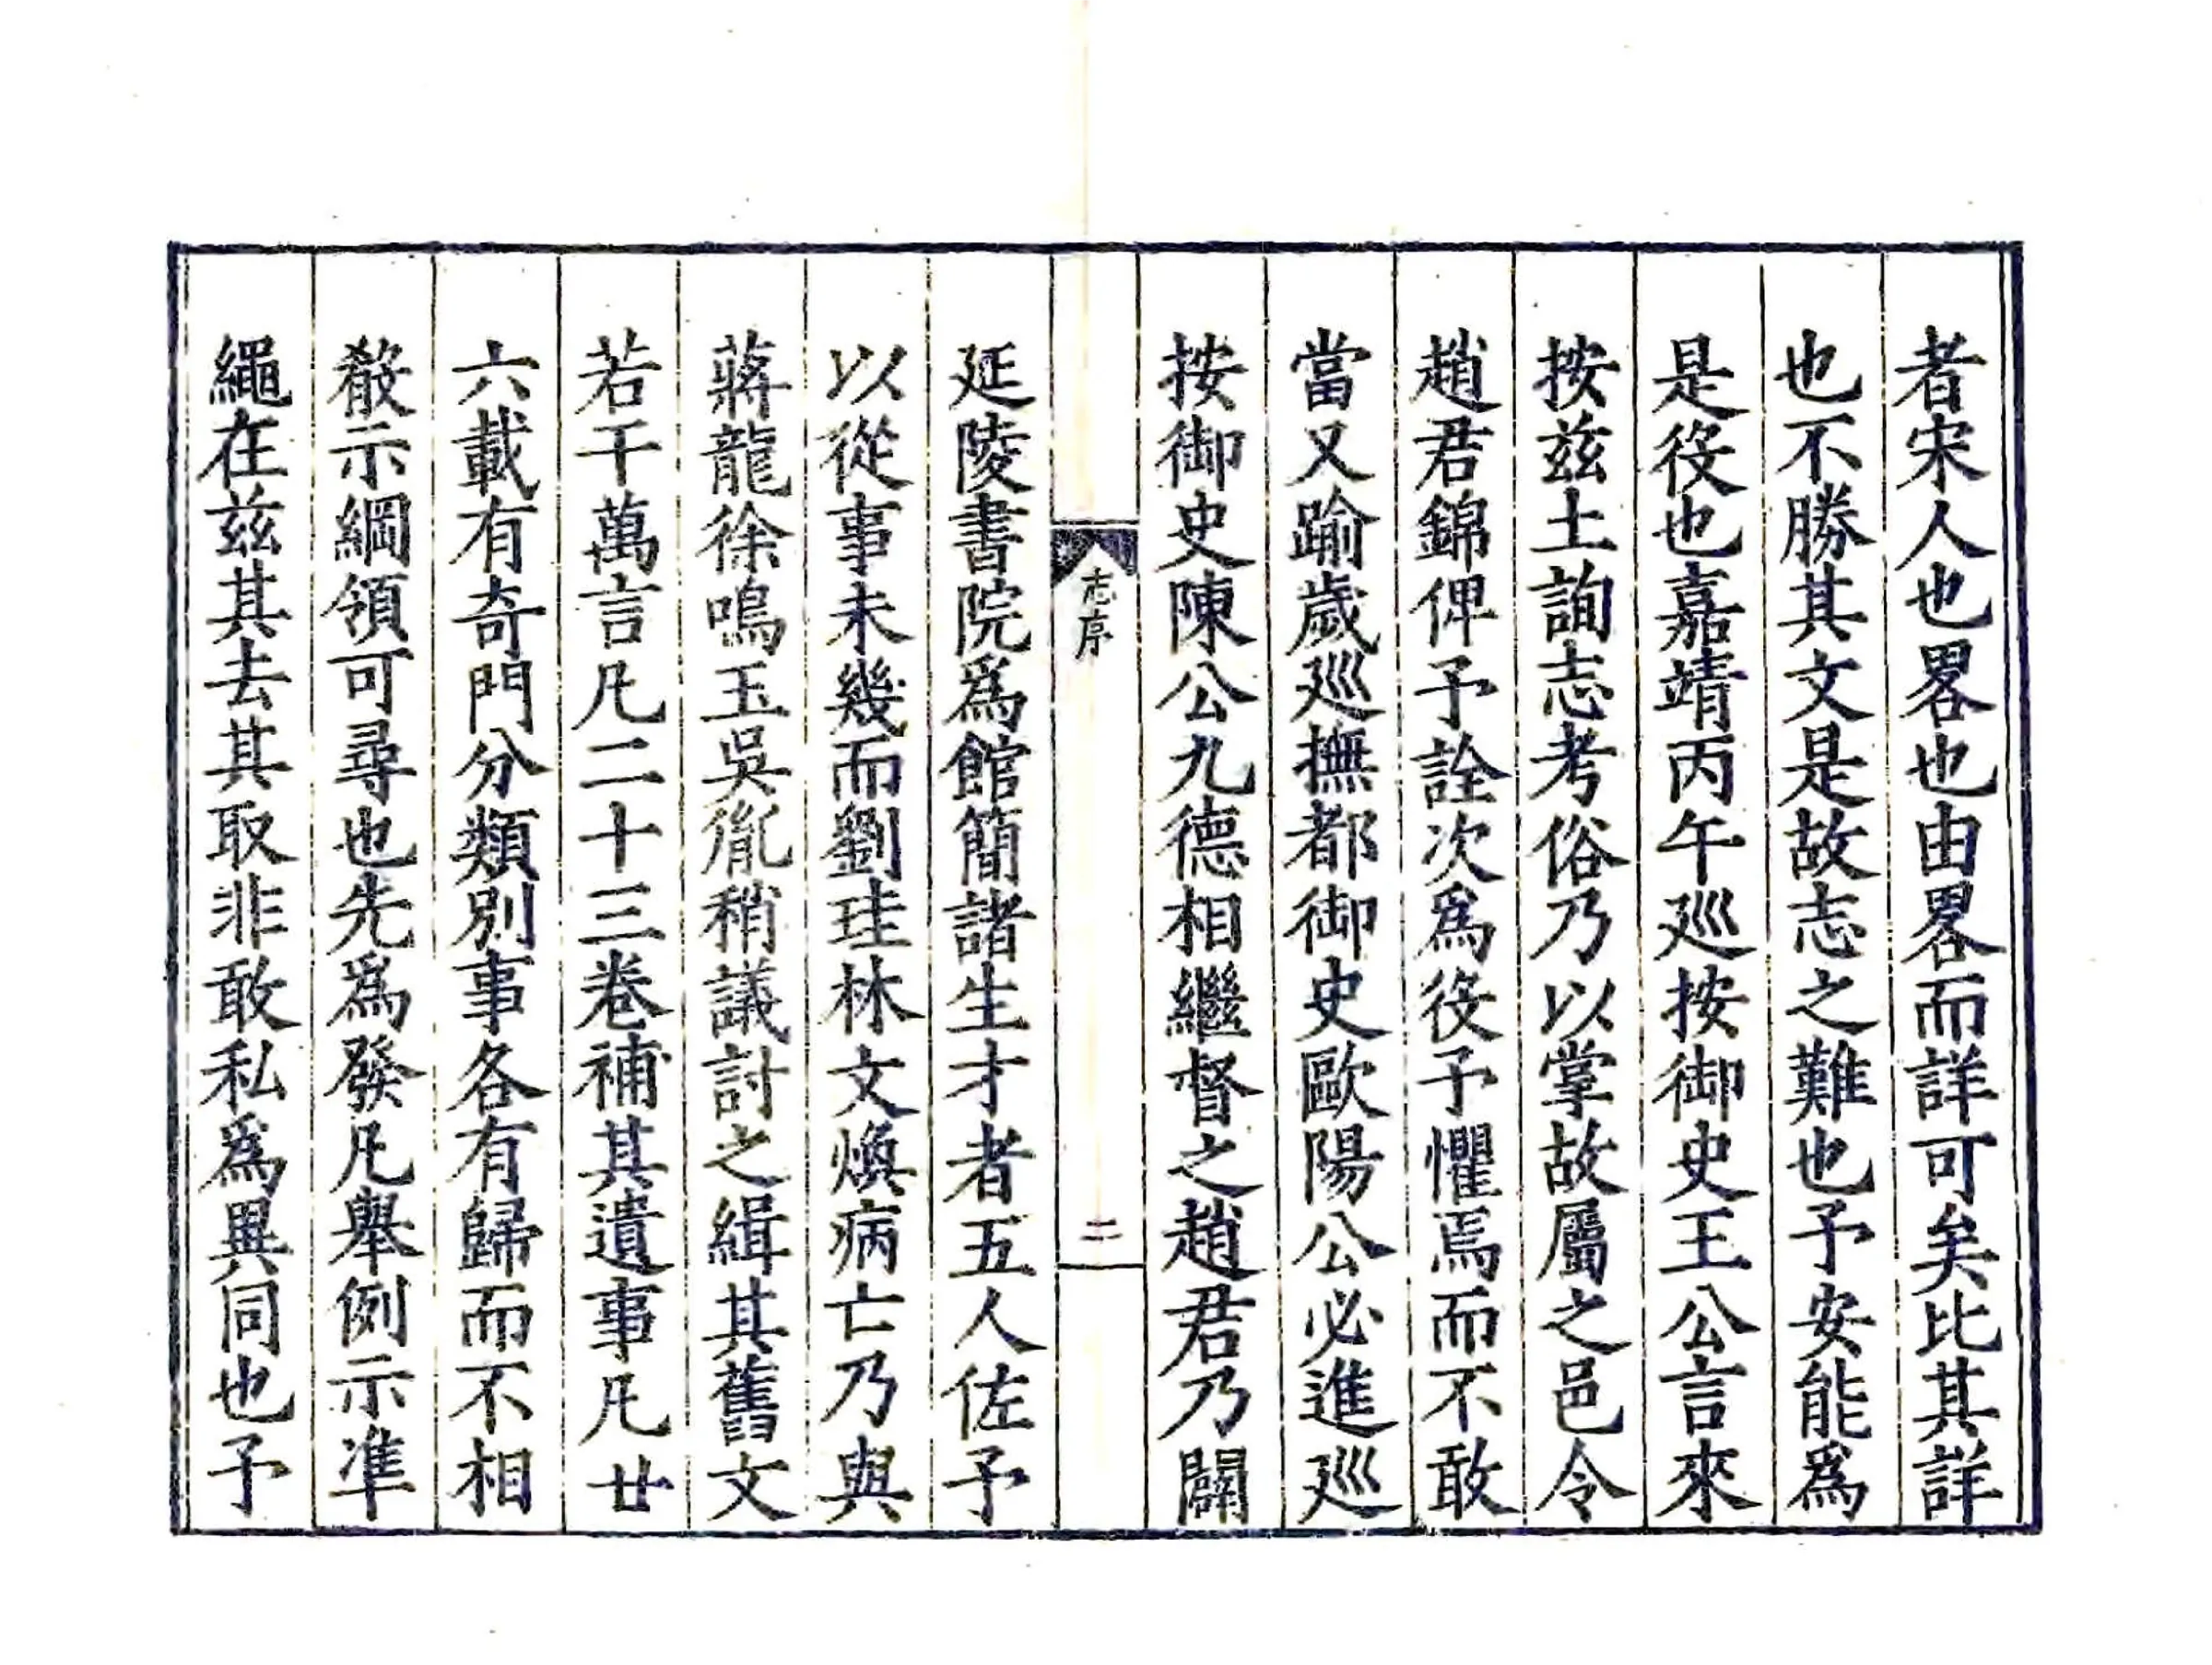 者宋人也畧也由畧而詳可矣比其詳
也不勝其文是故志之難也予安能爲
是役也嘉靖丙午廵按御史王公言來
按兹土詢志考俗乃以掌故屬之邑令
趙君錦俾予詮次爲役予懼焉而不敢
當又踰歲廵撫都御史歐陽公必進廵
按御史陳公九德相繼督之趙君乃闢
志序
二
延陵書院爲館簡諸生才者五人佐予
以從事未幾而劉珪林文煥病亡乃與
蔣龍徐鳴玉吳胤稍議討之緝其舊文
若干萬言凡二十三卷補其遺事凡廿
六載有奇門分類別事各有歸而不相
殽示綱領可尋也先爲發凡舉例示準
繩在兹其去其取非敢私爲異同也予